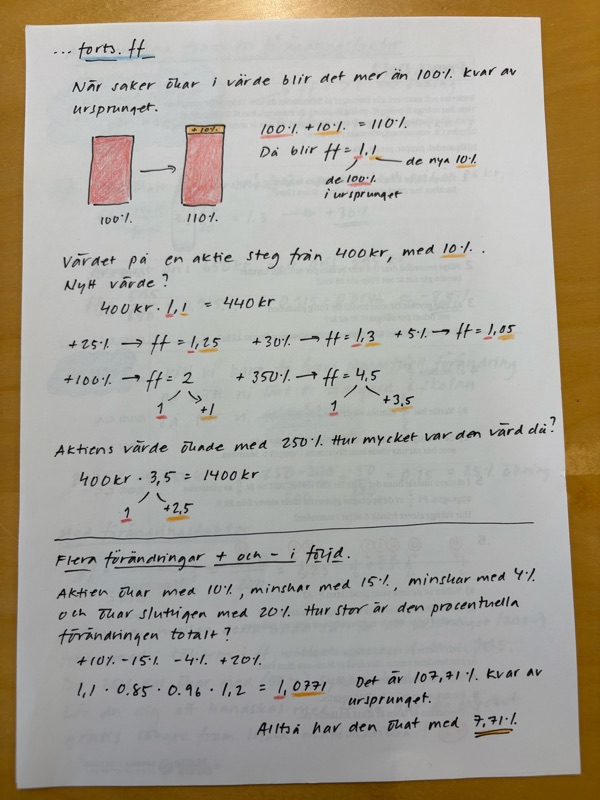 ... forts. ff
När saker ökar i värde blir det mer än 100% kvar av
ursprunget.
+10%
100% 110%
100% + 10% = 110%
Då blir ff = 1,1
de nya 10%
de 100%
i ursprunget
Värdet på en aktie steg från 400kr, med 10%.
Nytt värde?
400kr · 1,1 = 440kr
+25% → ff = 1,25 +30% → ff = 1,3 +5% → ff = 1,05
+100% → ff = 2 +350% → ff = 4,5
1 +1 1 +3,5
Aktiens värde ökade med 250%. Hur mycket var den värd då?
400kr · 3,5 = 1400kr
1 +2,5
Flera förändringar + och - i följd.
Aktien ökar med 10%, minskar med 15%, minskar med 4%
och ökar slutligen med 20%. Hur stor är den procentuella
förändringen totalt?
+10% -15% -4% +20%
1,1 · 0.85 · 0.96 · 1,2 = 1,0771 Det är 107,71% kvar av
ursprunget.
Alltså har den ökat med 7,71%